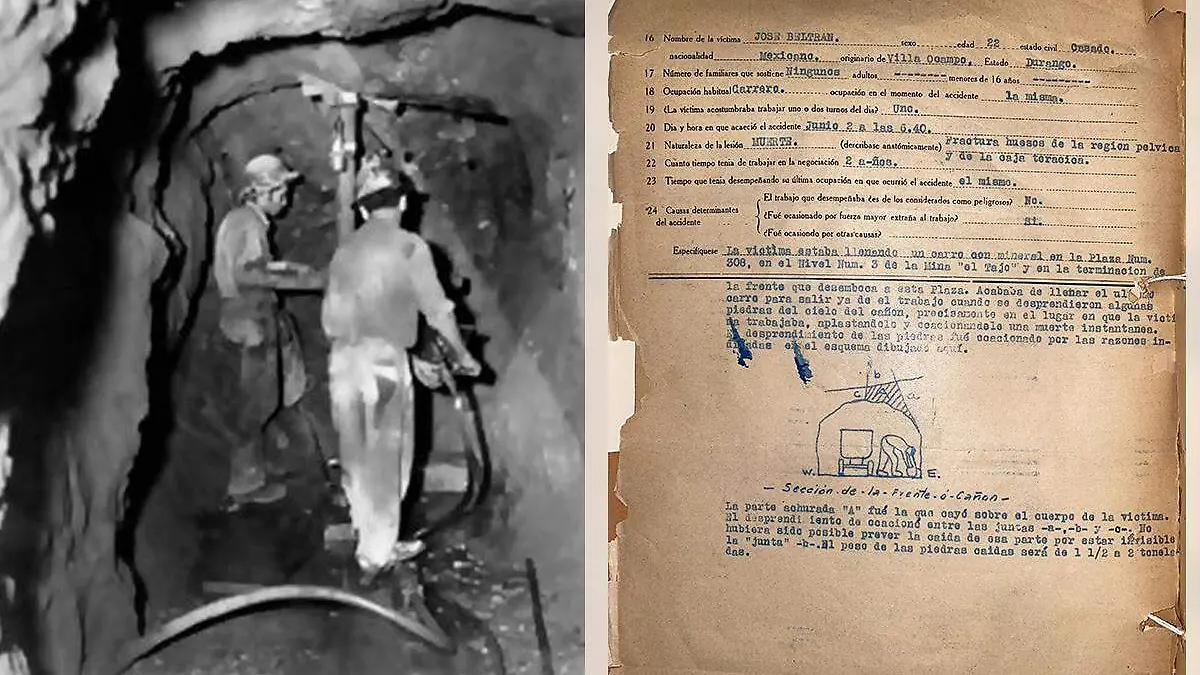 16 Nombre de la víctima JOSE BELTRAN. sexo edad 22 estado civil Casado.
nacionalidad Mexicano. originario de Villa Ocampo, Estado Durango.
17 Número de familiares que sostiene Ningunos adultos -------- menores de 16 años ---------
18 Ocupación habitual Carrero. ocupación en el momento del accidente la misma.
19 ¿La víctima acostumbraba trabajar uno o dos turnos del dia? Uno.
20 Dia y hora en que acaeció el accidente Junio 2 a las 6.40.
21 Naturaleza de la lesión MUERTE. (describase anatómicamente) Fractura huesos de la region pelvica
y de la caja toracica.
22 Cuánto tiempo tenia de trabajar en la negociación 2 a-ños.
23 Tiempo que tenia desempeñando su última ocupación en que ocurrió el accidente el mismo.
24 Causas determinantes del accidente
El trabajo que desempeñaba ¿es de los considerados como peligrosos? No.
¿Fué ocasionado por fuerza mayor extraña al trabajo? Si.
¿Fué ocasionado por otras causas?
Especifíquese La victima estaba llenando un carro con mineral en la Plaza Num.
308, en el Nivel Num. 3 de la Mina "el Tajo" y en la terminacion de
la frente que desemboca a esta Plaza. Acababa de llenar el
carro para salir ya de el trabajo cuando se desprendieron algunas
piedras del cielo del cañon, precisamente en el lugar en que la victi
trabajaba, aplastandolo y coacionandele una muerte instantanea.
desprendimiento de las piedras fué coacionado por las razones in-
en el esquema dibujado aquí.
b
c a
W. E.
- Sección-de-la-Frente-ó-Cañon -
La parte achurada "A" fué la que cayó sobre el cuerpo de la victima.
El desprendi iento de ocacionó entre las juntas -a-,-b- y -c-. No
hubiera sido posible prever la caida de esa parte por estar invisible
la "junta" -b-. El peso de las piedras caidas será de 1 1/2 a 2 tonela-
das.